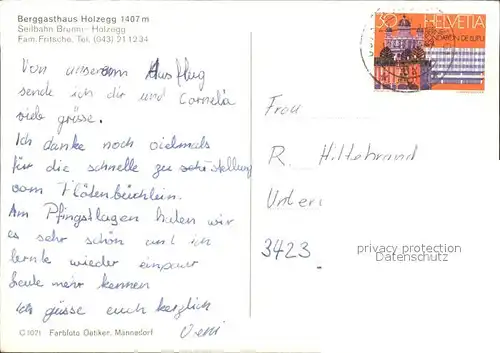 Berggasthaus Holzegg 1407 m
Seilbahn Brunni - Holzegg
Fam. Fritsche, Tel. (043) 21 12 34
Von unserem Ausflug
sende ich dir und Cornelia
viele grüsse.
Ich danke noch vielmals
für die schnelle zustellung
vom Flötenbüchlein.
Am Pfingstlagen haben wir
es sehr schön und ich
lernte wieder einpaar
Leute mehr kennen
Ich grüsse euch herzlich
Vreni
C 1071 Farbfoto Oetiker, Männedorf
30 HELVETIA
Frau
R. Hiltebrand
Unter
3423
privacy protection
Datenschutz